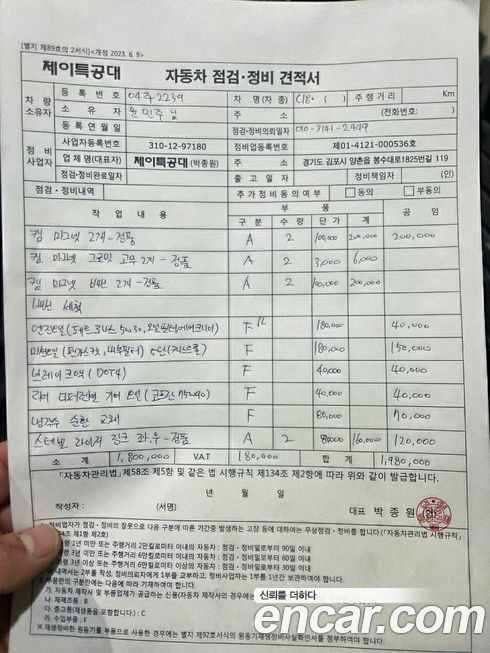 [별지 제89호의 2서식]<개정 2023. 6. 9>
제이특공대 자동차 점검·정비 견적서
차량 소유자
등 록 번 호 04주2239 차 명(차 종) C180 ( ) 주 행 거 리 Km
소 유 자 님 주 소 (전화번호: )
등 록 연 월 일 점검·정비의뢰일자 010-3141-2449
정비 사업자
사업자등록번호 310-12-97180 정비업등록번호 제01-4121-000536호
업 체 명(대표자) 제이특공대 (박종원) 주 소 경기도 김포시 양촌읍 봉수대로1825번길 119
점검·정비완료일자 출 고 일 자 정비책임자 (인)
점검·정비내역 추가정비동의여부 동의 부동의
작 업 내 용 부 품 공 임
구 분 수 량 단 가 계
캠 마그넷 2개 - 정품 A 2 100,000 200,000 200,000
캠 마그넷 고무 2개 - 정품 A 2 3,000 6,000
캠 마그넷 배선 2개 - 정품 A 2 100,000 200,000
배선 세척
5W30, F 180,000 40,000
5단 F 180,000 150,000
브레이크액 (DOT4) F 40,000 40,000
리어 기어 오일 75W90) F 40,000 40,000
냉각수 순환 교체 F 80,000 70,000
링크 좌,우 - 정품 A 2 80,000 160,000 120,000
소 계 1,800,000 V.A.T 180,000 1,980,000
「자동차관리법」제58조 제5항 및 같은 법 시행규칙 제134조 제2항에 따라 위와 같이 발급합니다.
년 월 일
작성자 : (서명) 대 표 박 종 원 (인)
정비업자가 점검·정비의 잘못으로 다음 구분에 따른 기간중 발생하는 고장 등에 대하여는 무상점검·정비를 합니다.(「자동차관리법 시행규칙」
제134조 제1항 제2호)
1년 미만 또는 주행거리 2만킬로미터 이내의 자동차 : 점검·정비일로부터 90일 이내
3년 미만 또는 주행거리 6만킬로미터 이내의 자동차 : 점검·정비일로부터 60일 이내
3년 이상 또는 주행거리 6만킬로미터 이상의 자동차 : 점검·정비일로부터 30일 이내
2부를 작성, 정비의뢰자에게 1부를 교부하고, 정비사업자는 1부를 1년간 보관하여야 합니다.
부품란의 구분란에는 다음에 따라 기재하여야 합니다.
가. 자동차 제작사 및 부품업체에서 공급하는 신품(자동차 제작사의 경우에는
나. 재제조품 : B
다. 중고품(재생품을 포함합니다.) : C
라. 수입부품 : F
※재생정비한 원동기를 부품으로 사용한 경우에는 별지 제92호서식의 원동기재생정비사실확인서를 첨부하여야 합니다.
신뢰를 더하다
encar.com